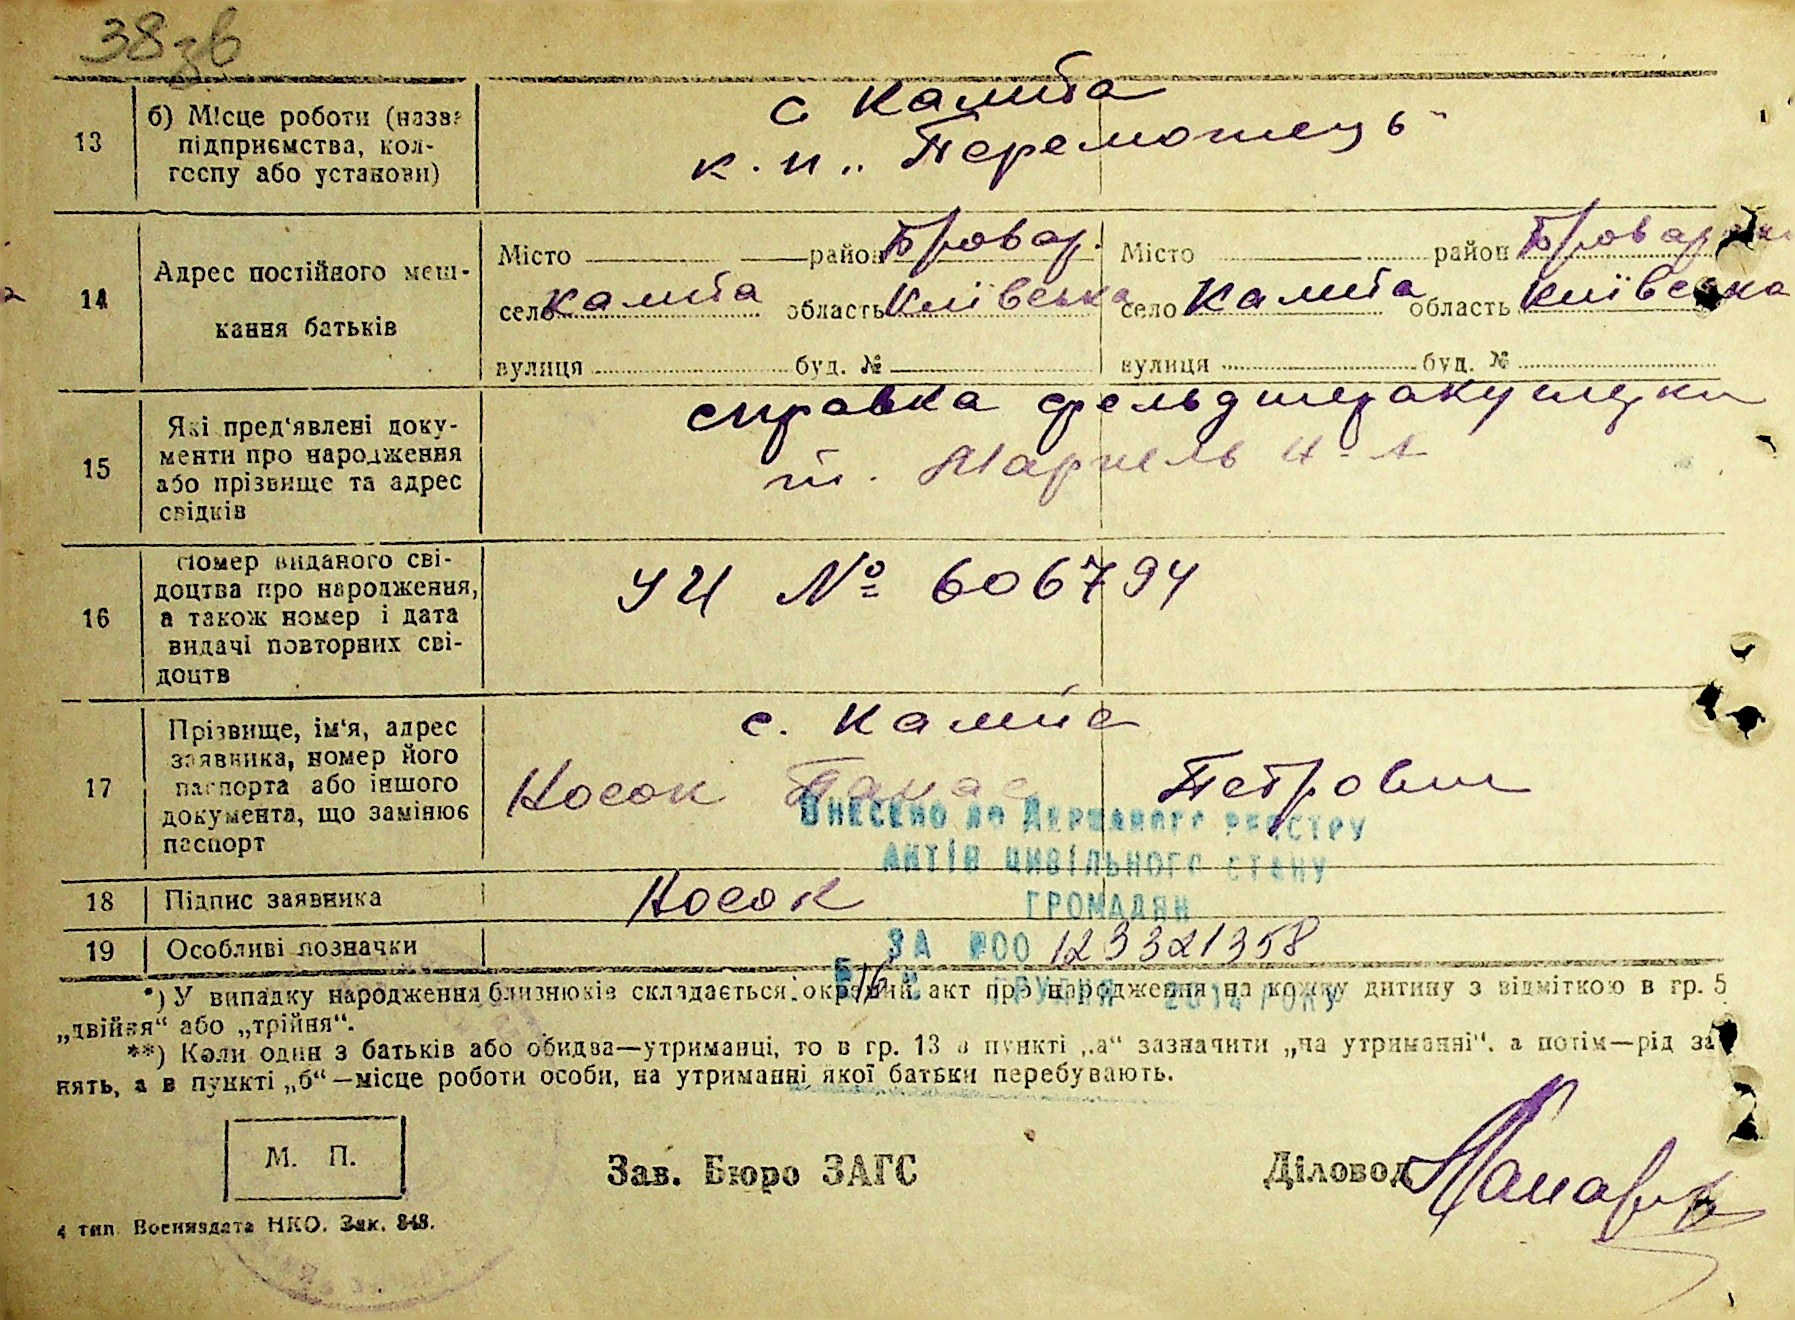 38зв
13 б) Місце роботи (назва підприємства, кол-
госпу або установи)
с Калита
к.п. „Переможець"
14 Адрес постійного меш-
кання батьків
Місто район Бровар. Місто район Бровар
село Калита область Київська село Калита область Київська
вулиця буд. № вулиця буд. №
15 Які пред'явлені доку-
менти про народження
або прізвище та адрес
свідків
справка фельдшеракушерки
т.
16 Номер виданого сві-
доцтва про народження,
а також номер і дата
видачі повторних сві-
доцтв
УЧ № 606794
17 Прізвище, ім'я, адрес
заявника, номер його
паспорта або іншого
документа, що замінює
паспорт
с. Калита
Носок Панас Петрович
ВНЕСЕНО ДО ДЕРЖАВНОГО РЕЄСТРУ
АКТІВ ЦИВІЛЬНОГО СТАНУ
ГРОМАДЯН
18 Підпис заявника Носок
19 Особливі позначки
ЗА №00 123321358
16 ГРУДНЯ 2014 РОКУ
*) У випадку народження близнюків складається окремий акт про народження на кожну дитину з відміткою в гр. 5
„двійня“ або „трійня“.
**) Коли один з батьків або обидва—утриманці, то в гр. 13 в пункті „а“ зазначити „на утриманні“, а потім—рід за-
нять, а в пункті „б“—місце роботи особи, на утриманні якої батьки перебувають.
М. П.
Зав. Бюро ЗАГС
Діловод
4 тип. Воениздата НКО. Зак. 848.